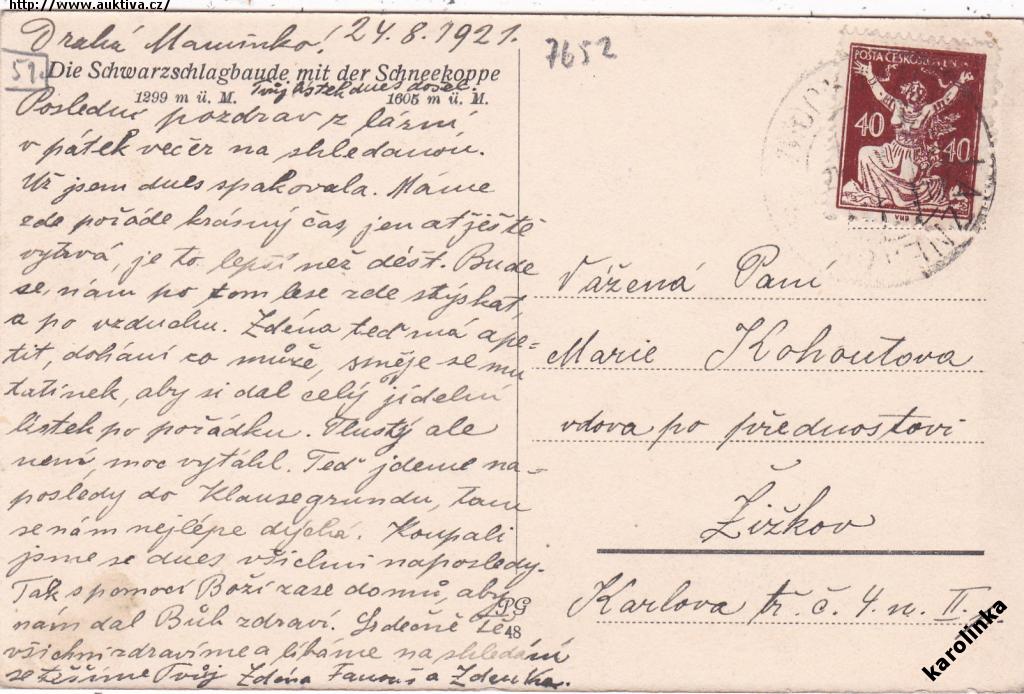 http://www.auktiva.cz/
Drahá Maminko! 24.8.1921.
7652
51.
Die Schwarzschlagbaude mit der Schneekoppe
1299 m ü. M. 1605 m ü. M.
Tvůj lístek dnes došel.
Poslední pozdrav z lázní,
v pátek večer na shledanou.
Už jsem dnes spakovala. Máme
zde pořáde krásný čas, jen ať ještě
vytrvá, je to lepší než déšť. Bude
se nám po tom lese zde stýskat,
a po vzduchu. Zdéna teď má ape-
tit, dohání co může, směje se mu
tatínek, aby si dal celý jídelní
lístek po pořádku. Tlustý ale
není, moc vytáhl. Teď jdeme na-
posledy do Klausegrundu, tam
se nám nejlépe dýchá. Koupali
jsme se dnes všichni naposledy.
Tak s pomocí Boží zase domů, aby
nám dal Bůh zdraví. Srdečně Tě
všichni zdravíme a líbáme na shledání
se těšíme Tvůj Zdéna Fanouš a Zdenka.
PG
48
POSTA ČESKOSLOVENSKÁ
40 40
VHB
Vážená Paní
Marie Kohoutova
vdova po přednostovi
Žižkov
Karlova tř. č. 4. n. II.
karolinka